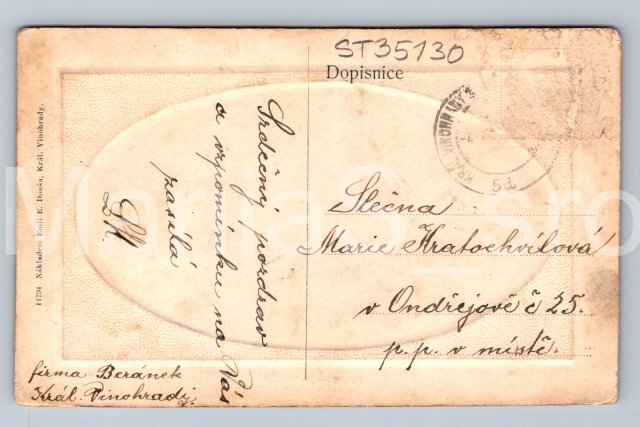 ST35130
Dopisnice
KRÁL. VINOHRADY
5d
11794 Nákladem Emil E. Douša, Král. Vinohrady.
Srdečný pozdrav
a vzpomínku na Vás
zasílá
Slečna
Marie Kratochvílová
v Ondřejově č 25.
p.p. v místě.
firma Beránek
Král. Vinohrady.